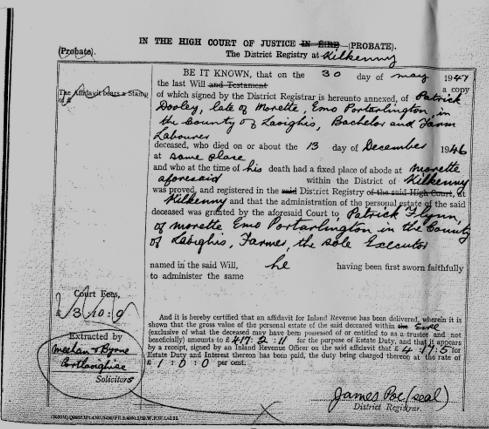 IN THE HIGH COURT OF JUSTICE IN EIRE (PROBATE).
(Probate). The District Registry at Kilkenny
BE IT KNOWN, that on the 30 day of May 1947
the last Will and Testament a copy
The Affidavit bears a Stamp
of £
of which signed by the District Registrar is hereunto annexed, of Patrick
Dooley, late of Morette, Emo Portarlington, in
the County of Laoighis, Bachelor and Farm
Labourer
deceased, who died on or about the 13 day of December 1946
at same place
and who at the time of his death had a fixed place of abode at Morette
aforesaid within the District of Kilkenny
was proved, and registered in the said District Registry of the said High Court, at
Kilkenny and that the administration of the personal estate of the said
deceased was granted by the aforesaid Court to Patrick Flynn,
of Morette Emo Portarlington in the County
of Laoighis, Farmer, the sole Executor
named in the said Will, he having been first sworn faithfully
to administer the same
Court Fees,
£ 3:10:9
And it is hereby certified that an affidavit for Inland Revenue has been delivered, wherein it is
shown that the gross value of the personal estate of the said deceased within the Eire
(exclusive of what the deceased may have been possessed of or entitled to as a trustee and not
beneficially) amounts to £ 417:2:11 for the purpose of Estate Duty, and that it appears
by a receipt, signed by an Inland Revenue Officer on the said affidavit that £ 4:17:5 for
Estate Duty and Interest thereon has been paid, the duty being charged thereon at the rate of
£ 1:0:0 per cent.
Extracted by
Meehan & Byrne
Portlaoighise
Solicitors
James Poe (seal)
District Registrar.